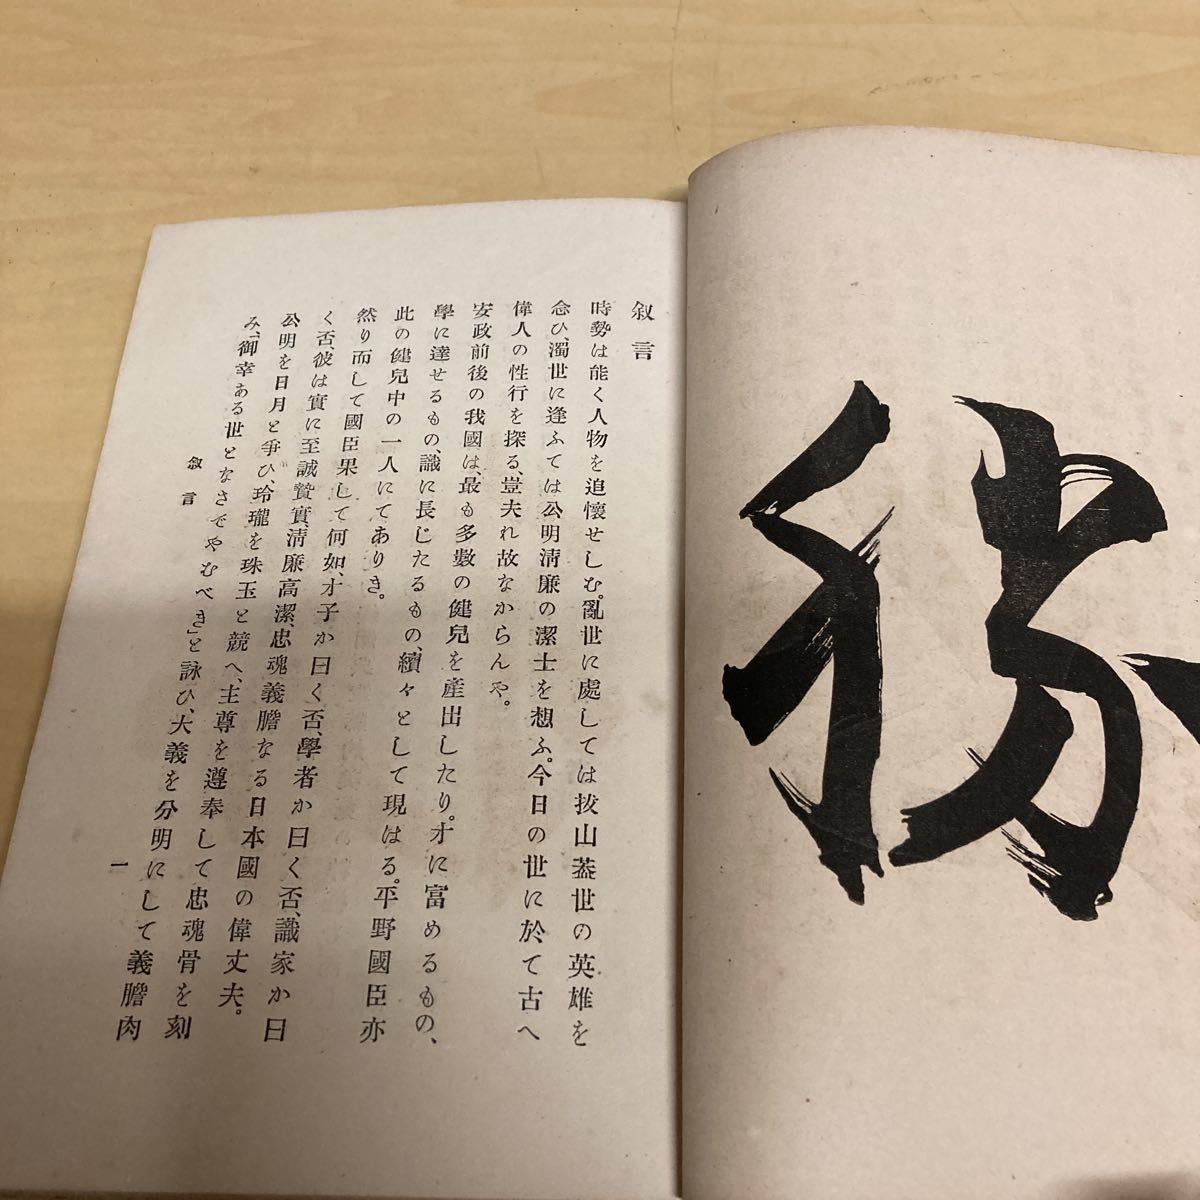 叙言
時勢は能く人物を追懷せしむ。亂世に處しては拔山蓋世の英雄を
念ひ、濁世に逢ふては公明淸廉の潔士を想ふ。今日の世に於て古へ
偉人の性行を探る、豈夫れ故なからんや。
安政前後の我國は、最も多數の健兒を產出したり。才に富めるもの、
學に達せるもの、識に長じたるもの、續々として現はる。平野國臣亦
此の健兒中の一人にてありき。
然り而して國臣果して何如、才子か曰く否、學者か曰く否、識家か曰
く否、彼は實に至誠贄實、淸廉高潔、忠魂義膽なる日本國の偉丈夫。
公明を日月と爭ひ、玲瓏を珠玉と競へ、主尊を遵奉して忠魂骨を刻
み、「御幸ある世となさでやむべき」と詠ひ、大義を分明にして義膽肉
叙言
一